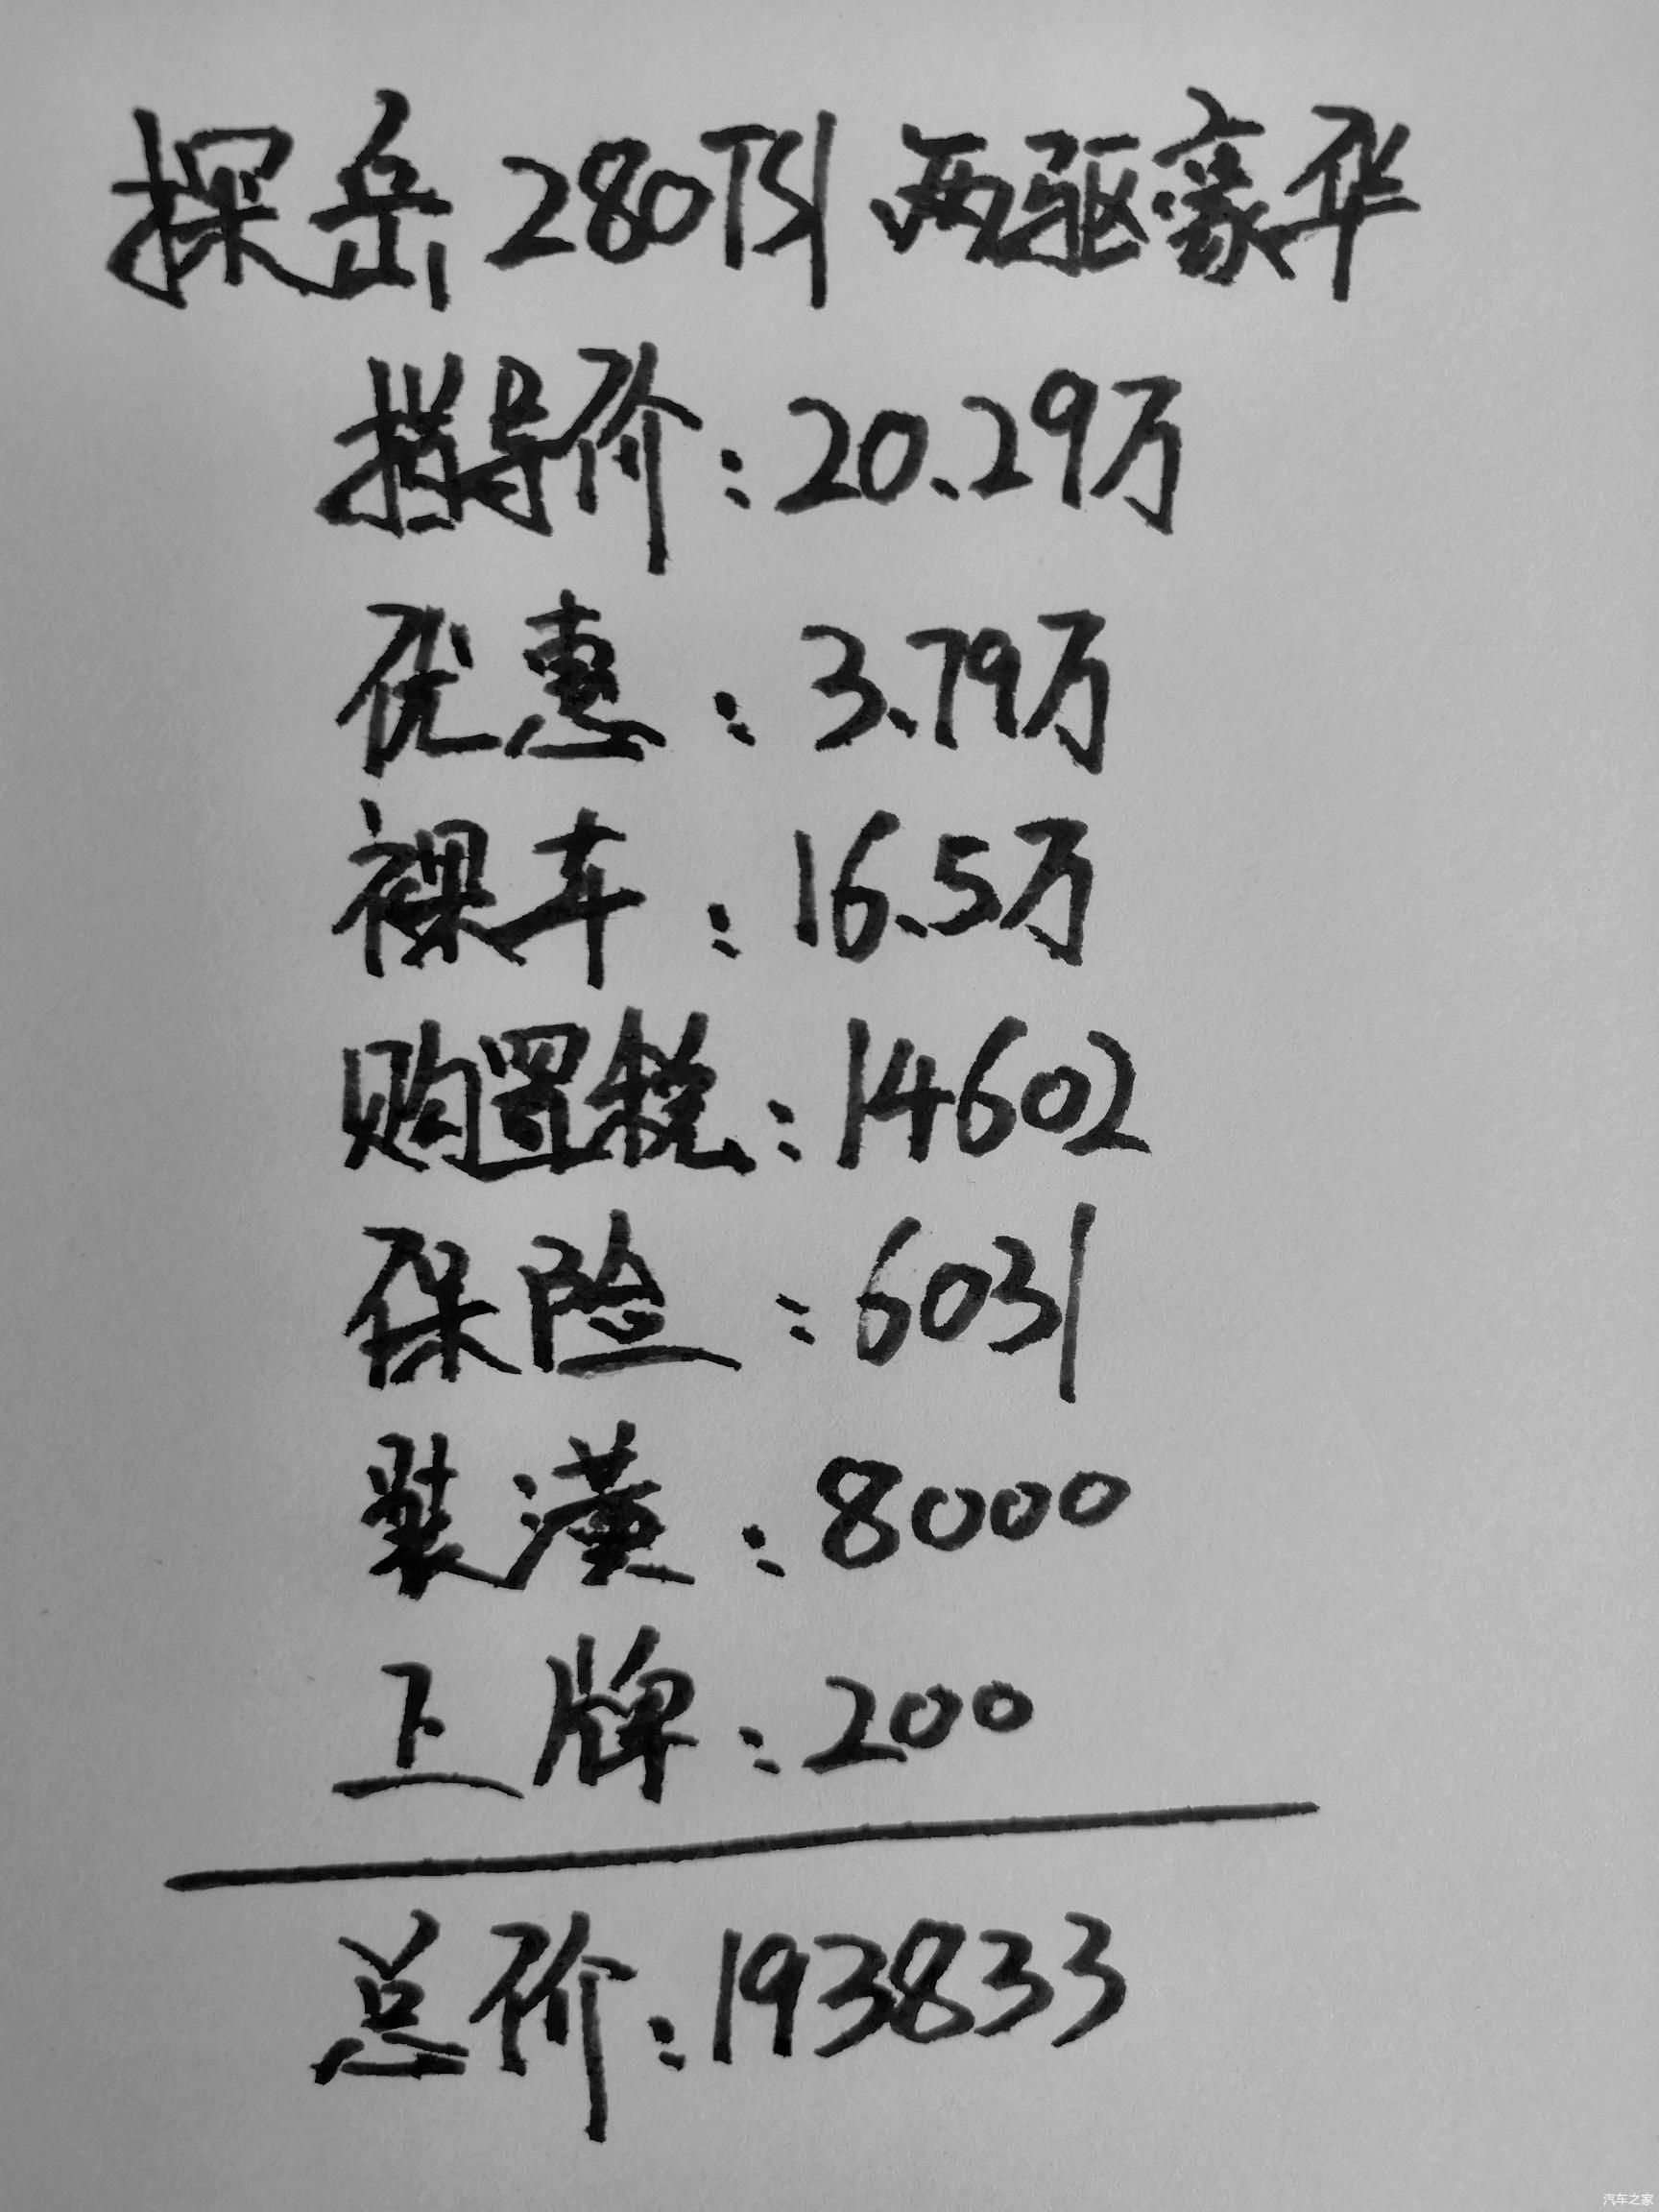 探岳280TSI 两驱豪华
指导价:20.29万
优惠:3.79万
裸车:16.5万
购置税:14602
保险:6031
装潢:8000
上牌:200
总价:193833
汽车之家